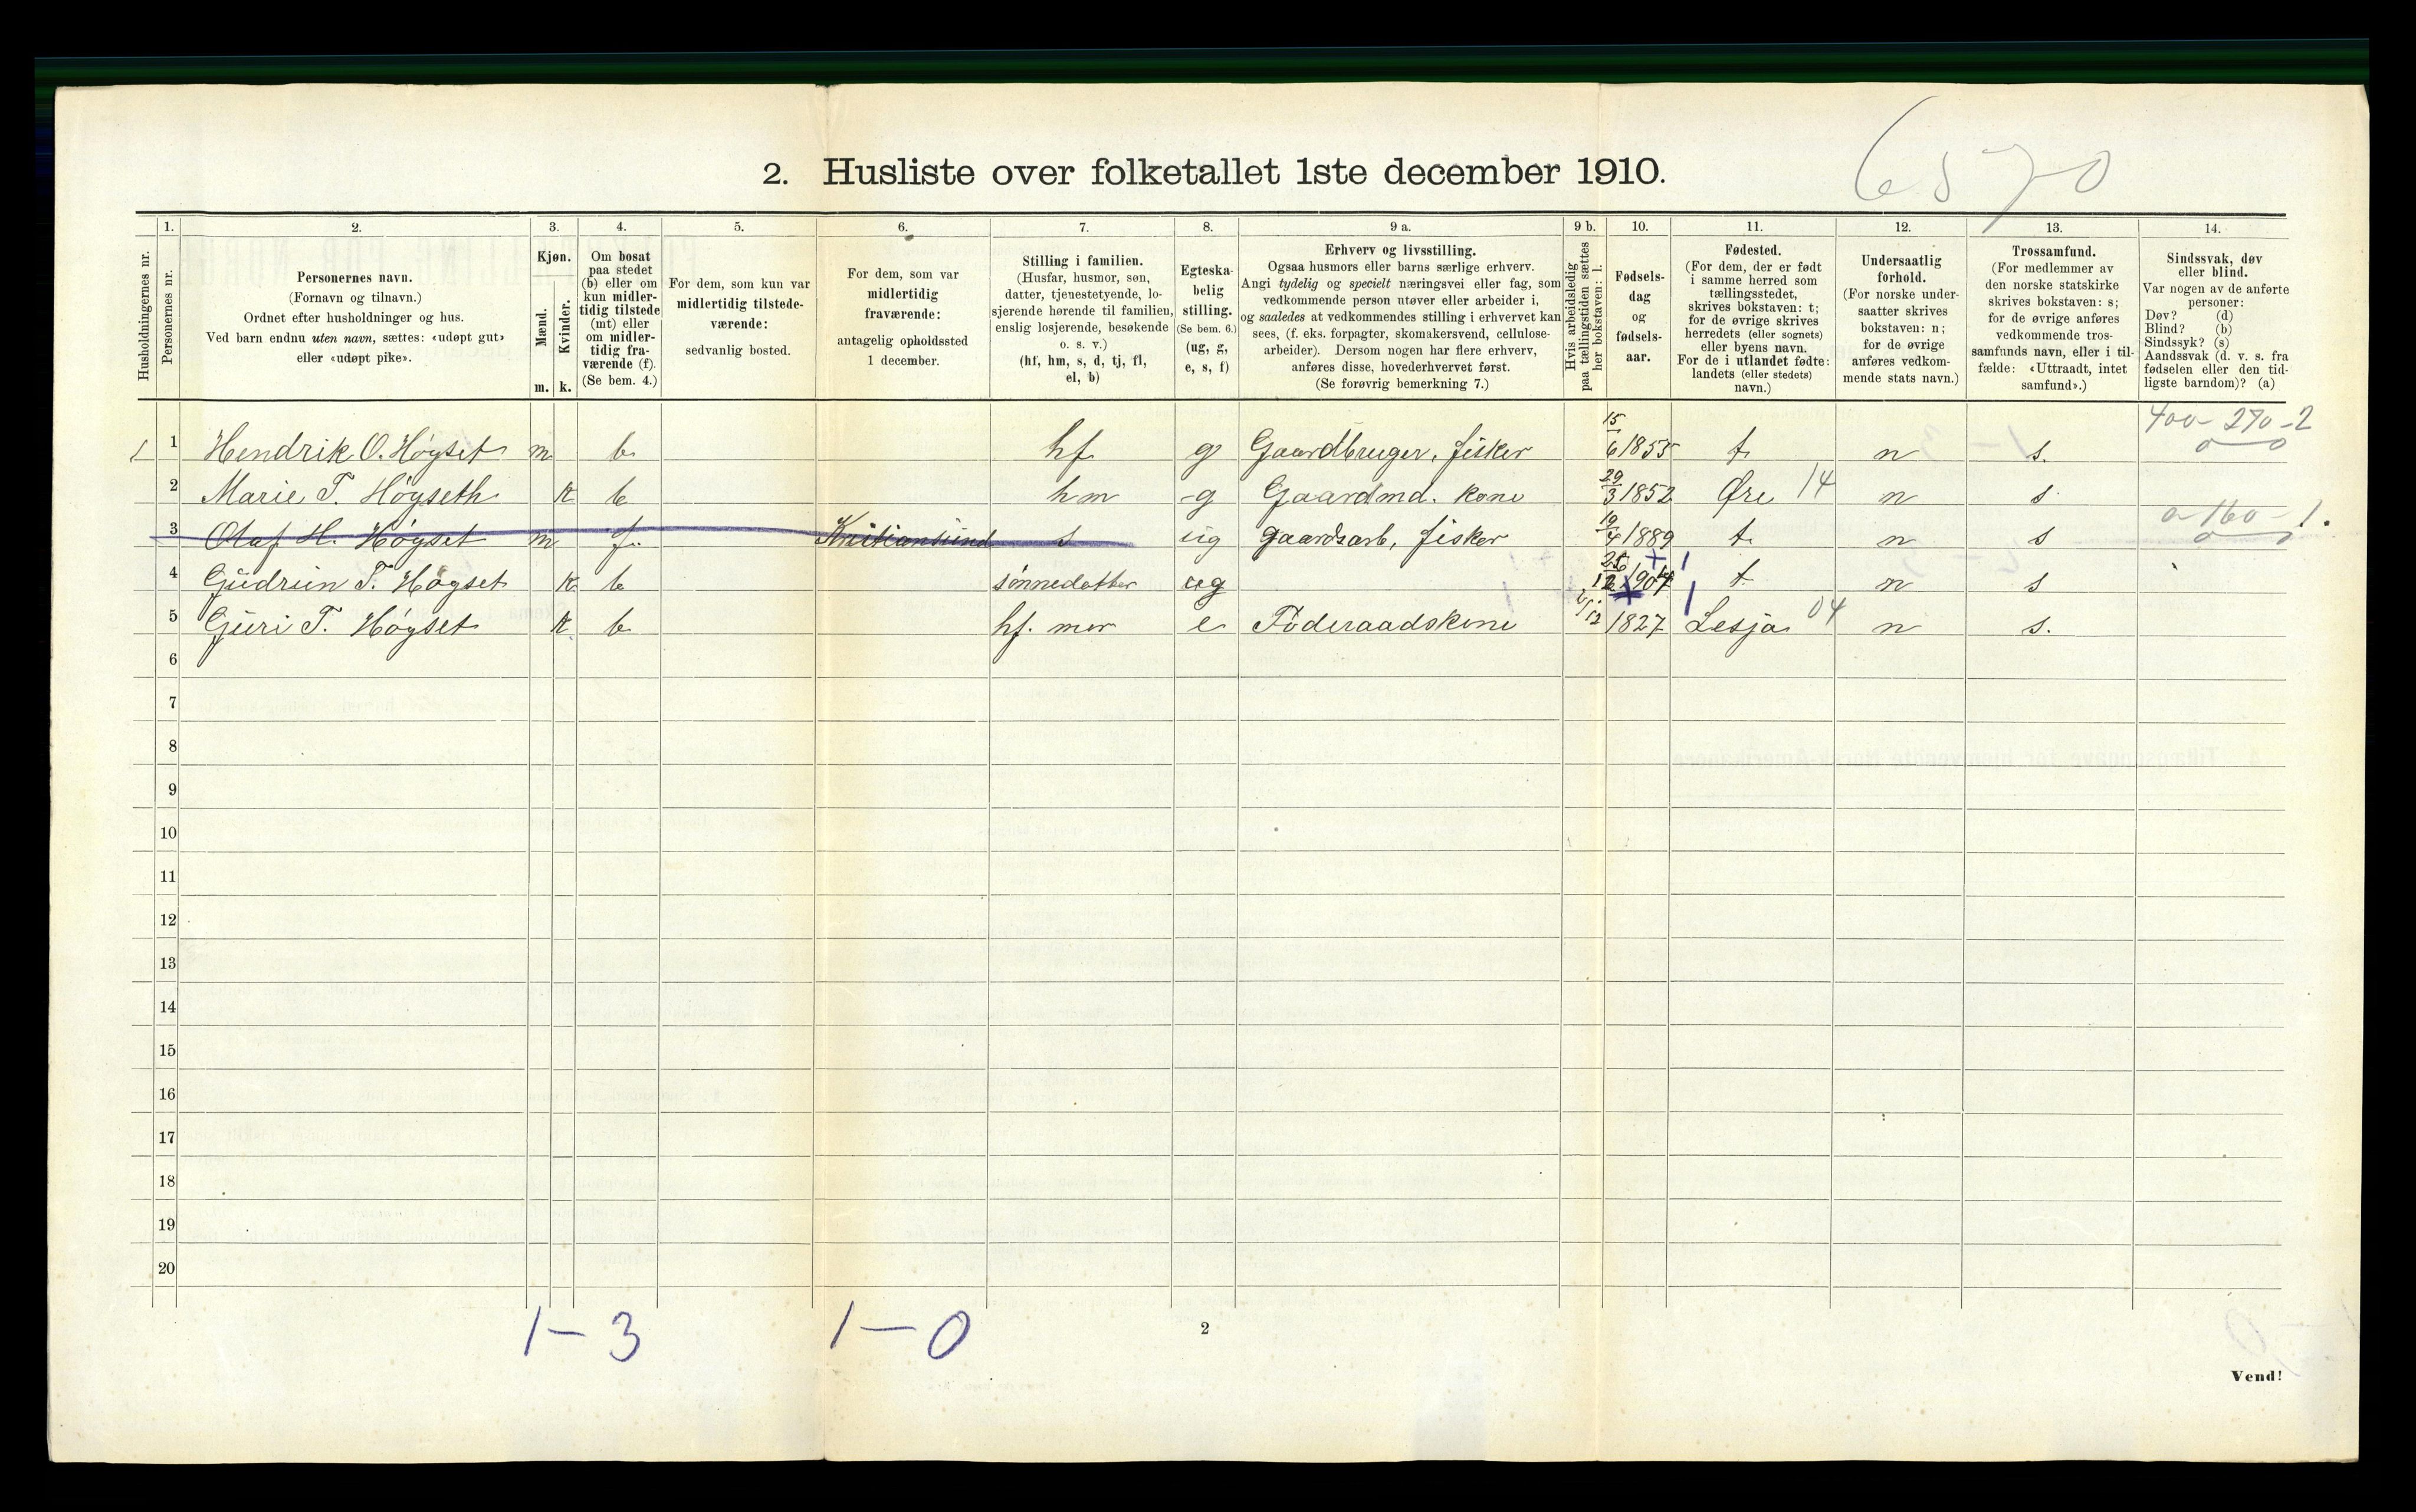 6570
2. Husliste over folketallet 1ste december 1910.
Husholdningernes nr.
1. Personernes nr.
2. Personernes navn.
(Fornavn og tilnavn.)
Ordnet efter husholdninger og hus.
Ved barn endnu uten navn, sættes: «udøpt gut»
eller «udøpt pike».
3. Kjøn.
Mænd. m.
Kvinder. k.
4. Om bosat
paa stedet
(b) eller om
kun midler-
tidig tilstede
(mt) eller
om midler-
tidig fra-
værende (f).
(Se bem. 4.)
5. For dem, som kun var
midlertidig tilstede-
værende:
sedvanlig bosted.
6. For dem, som var
midlertidig
fraværende:
antagelig opholdssted
1 december.
7. Stilling i familien.
(Husfar, husmor, søn,
datter, tjenestetyende, lo-
sjerende hørende til familien,
enslig losjerende, besøkende
o. s. v.)
(hf, hm, s, d, tj, fl,
el, b)
8. Egteska-
belig
stilling.
(Se bem. 6.)
(ug, g,
e, s, f)
9 a. Erhverv og livsstilling.
Ogsaa husmors eller barns særlige erhverv.
Angi tydelig og specielt næringsvei eller fag, som
vedkommende person utøver eller arbeider i,
og saaledes at vedkommendes stilling i erhvervet kan
sees, (f. eks. forpagter, skomakersvend, cellulose-
arbeider). Dersom nogen har flere erhverv,
anføres disse, hovederhvervet først.
(Se forøvrig bemerkning 7.)
9 b. Hvis arbeidsledig
paa tællingstiden sættes
her bokstaven: l.
10. Fødsels-
dag
og
fødsels-
aar.
11. Fødested.
(For dem, der er født
i samme herred som
tællingsstedet,
skrives bokstaven: t;
for de øvrige skrives
herredets (eller sognets)
eller byens navn.
For de i utlandet fødte:
landets (eller stedets)
navn.)
12. Undersaatlig
forhold.
(For norske under-
saatter skrives
bokstaven: n;
for de øvrige
anføres vedkom-
mende stats navn.)
13. Trossamfund.
(For medlemmer av
den norske statskirke
skrives bokstaven: s;
for de øvrige anføres
vedkommende tros-
samfunds navn, eller i til-
fælde: «Uttraadt, intet
samfund».)
14. Sindssvak, døv
eller blind.
Var nogen av de anførte
personer:
Døv? (d)
Blind? (b)
Sindssyk? (s)
Aandssvak (d. v. s. fra
fødselen eller den tid-
ligste barndom)? (a)
400-290-2
0 0
1 1 Hendrik O. Høyset m b. hf g Gaardbruger, fisker 15/6 1855 t. n s.
2 Marie T. Høyseth k b hm g Gaardmd. kone 29/3 1852 Øre 14 n s
0-160-1.
3 Olaf H. Høyset m f. Kristiansund s ug gaardsarb, fisker 19/4 1889 t. n s
4 Gudrun T. Høgset k b sønnedatter ug 1907 t n s
5 Guri T. Høyset k b hf. mor e Föderaadskone 1827 Lesja 04 n s.
6
7
8
9
10
11
12
13
14
15
16
17
18
19
20
1-3 1-0
2
Vend!